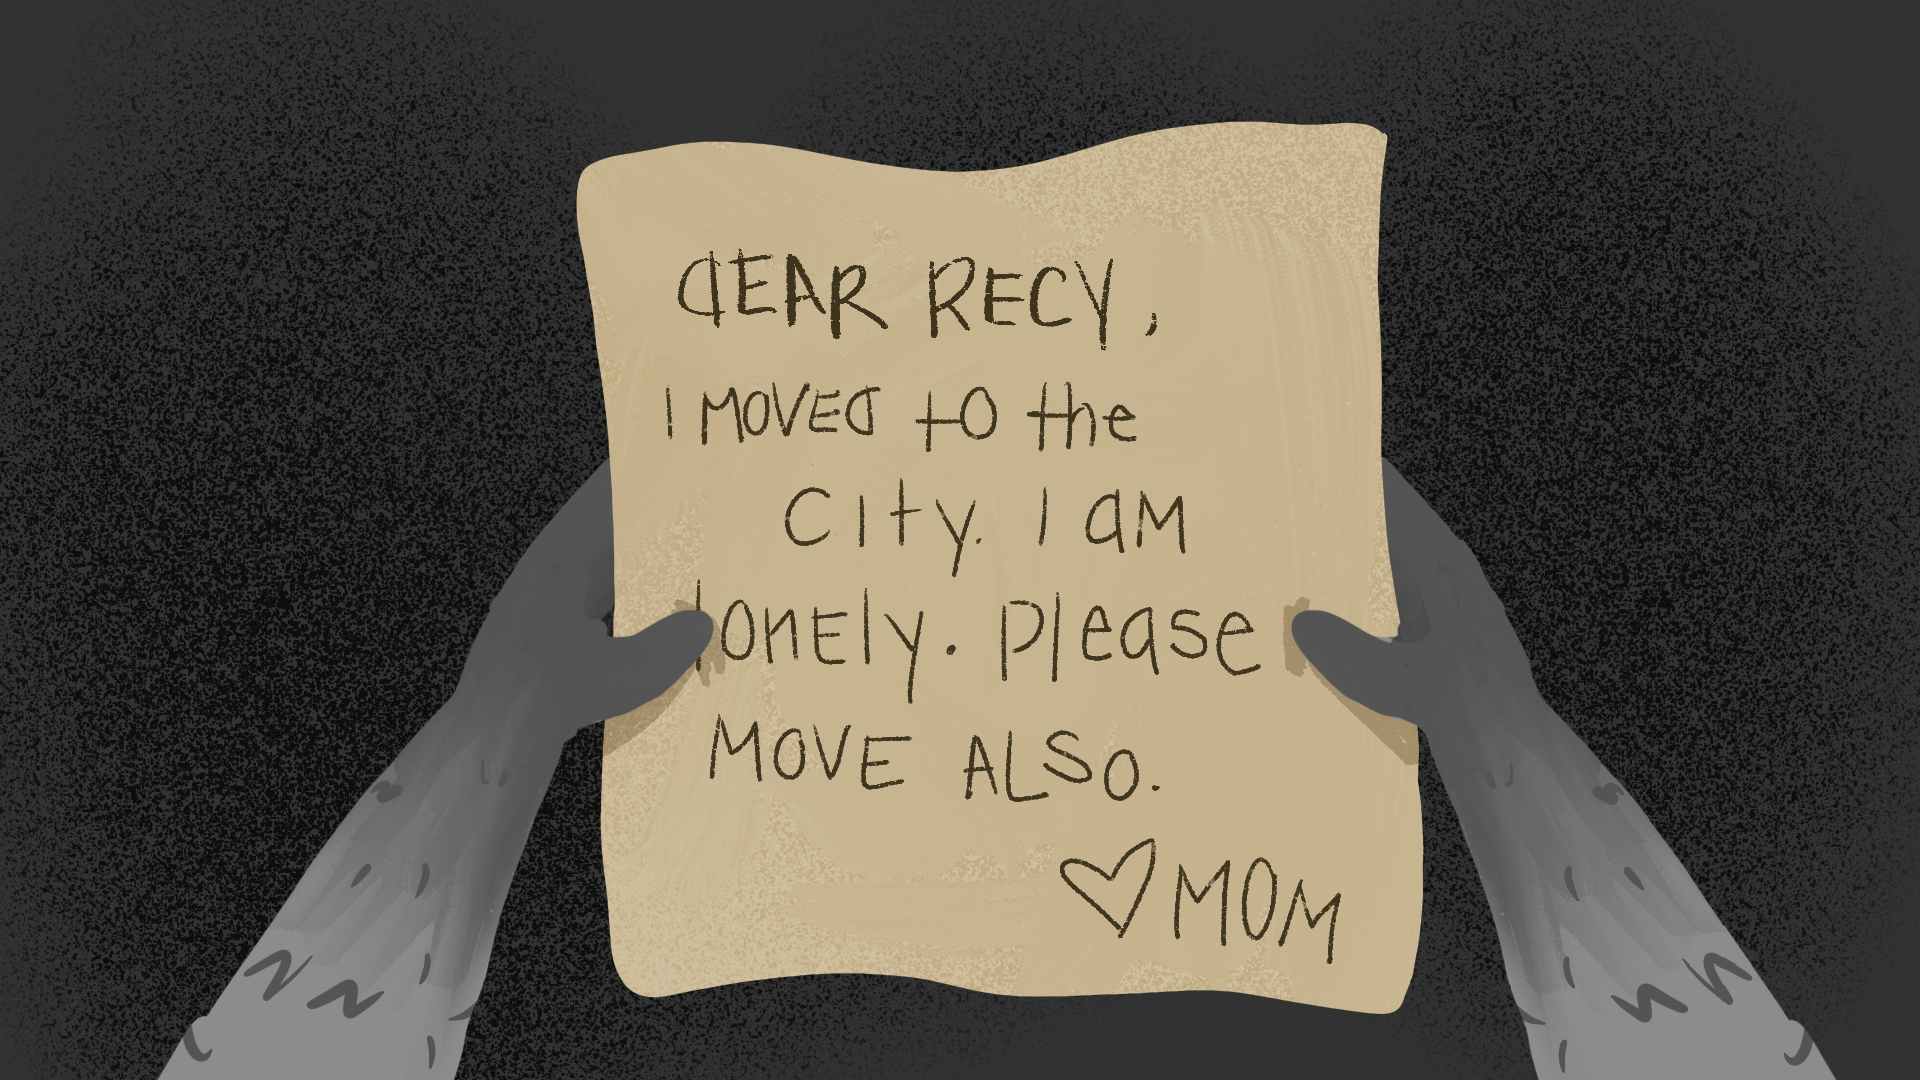 dEAR RECY,
I MOVEd to the
City. I aM
lonEly. Please
MOVE ALSO.
♡ MOM